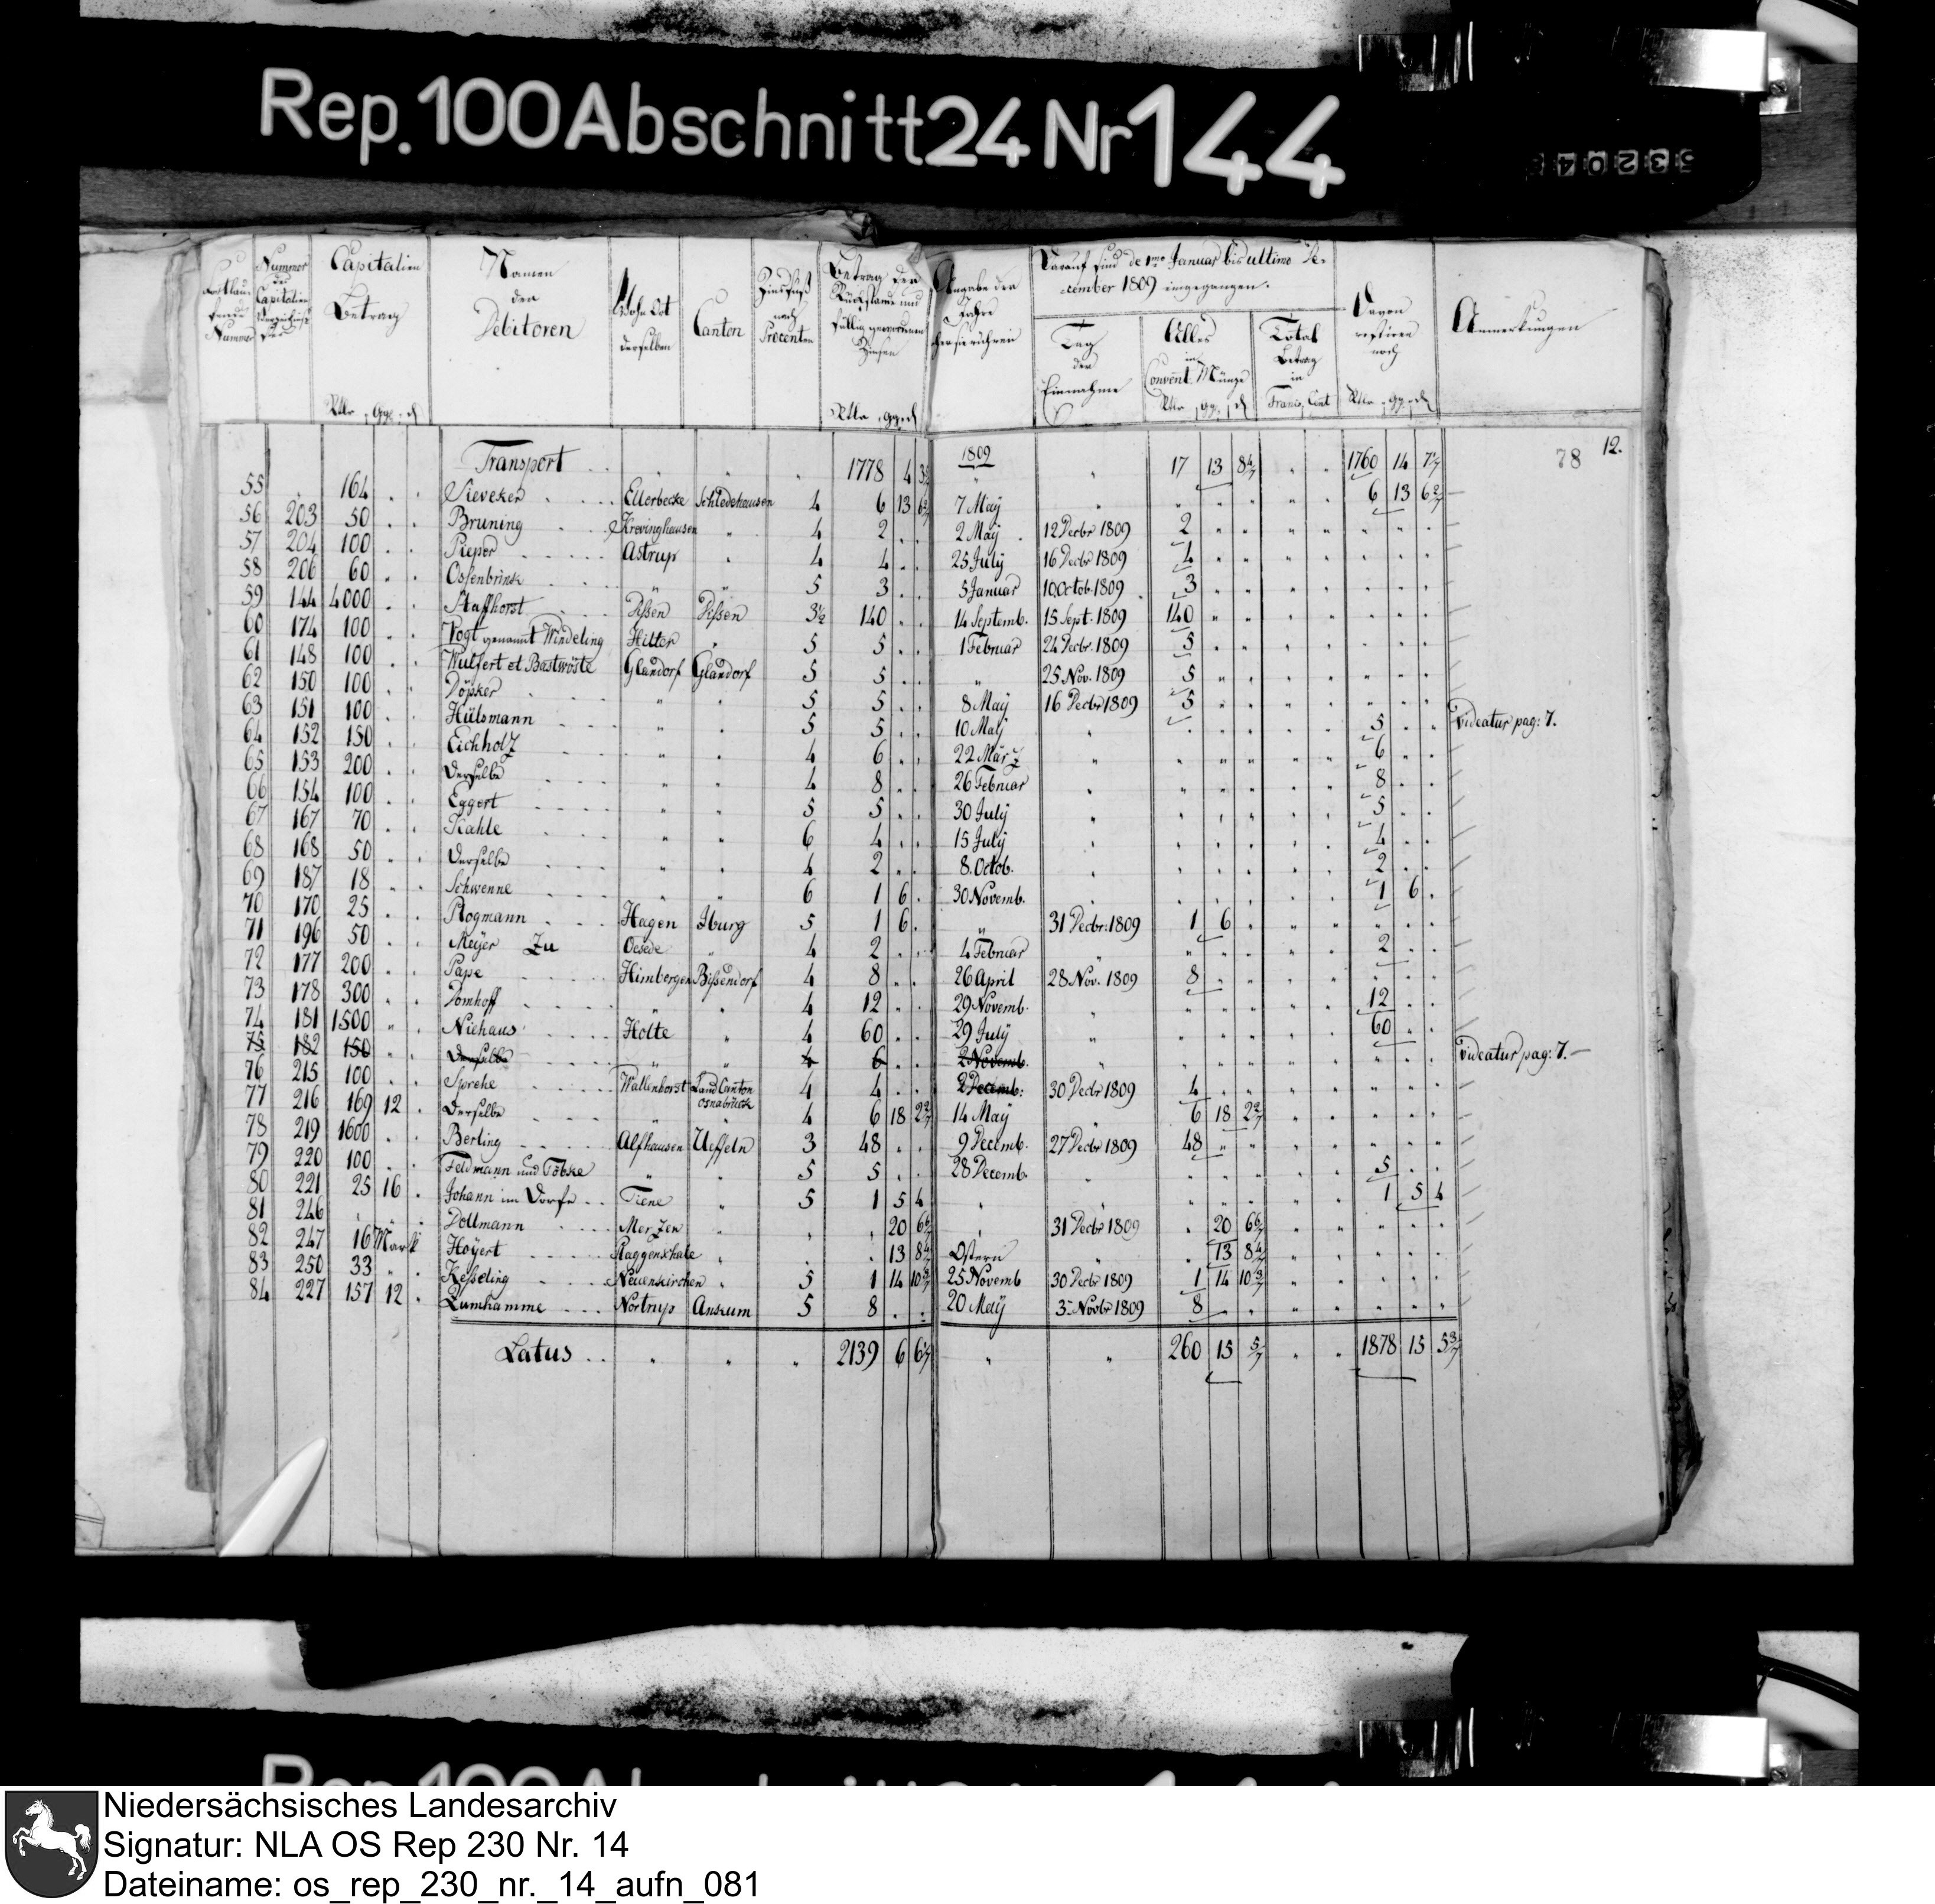 Rep. 100 Abschnitt 24 Nr 144
53204
Fortlaufende Nummer
Nummer des Capitalien Verzeichnisses
Capitalien Betrag
Rtlr ggr. d
Namen der Debitoren
Wohn Ort derselben
Canton
Zinsfuß nach Procenten
Betrag der Rückstände und fällig gewordenen Zinsen
Rtlr ggr. d
Angabe der Jahre
Darauf sind de 1mo Januar bis ultimo December 1809 eingegangen.
Tag der Einnahme
Alles in Convent. Münze
Rtlr ggr. d
Total Betrag in
Francs, Cent
Davon restiren noch
Rtlr ggr. d
Anmerkungen
78 12.
Transport . . 1778 4 1809 17 13 8 4/7 1760 14
55 164 Sieveker Ellerbecke Schledehausen 4 6 13 6 2/7 7 Maÿ 6 13 6 2/7
56 203 50 Bruning Krevinghausen 4 2 2 Maÿ 12 Decbr 1809 2
57 204 100 Pieper Astrup 4 4 25 Julÿ 16 Decbr 1809 4
58 206 60 Ossenbrink 5 3 5 Januar 10 Octob. 1809 3
59 144 4000 Staffhorst Dißen Dißen 3½ 140 14 Septemb. 15 Sept. 1809 140
60 174 100 Vogt genannt Windeling Hilter 5 5 1 Februar 24 Decbr. 1809 5
61 148 100 Wulfert et Bastwöste Glandorf Glandorf 5 5 25 Nov. 1809 5
62 150 100 Döpker 5 5 8 Maÿ 16 Decbr 1809 5
63 151 100 Hülsmann 5 5 10 Maÿ 5 Videatur pag: 7.
64 152 150 Eichholz 4 6 22 März 6
65 153 200 derselbe 4 8 26 Februar 8
66 154 100 Eggert 5 5 30 Julÿ 5
67 167 70 Kahle 6 4 15 Julÿ 4
68 168 50 derselbe 4 2 8. Octob. 2
69 187 18 Schwenne 6 1 6 30 Novemb. 1 6
70 170 25 Rogmann Hagen Iburg 5 1 6 31 Decbr: 1809 1 6
71 196 50 Meÿer zu Oesede 4 2 4 Februar 2
72 177 200 Pape Himbergen Bißendorf 4 8 26 April 28 Nov. 1809 8
73 178 300 Domhoff 4 12 29 Novemb. 12
74 181 1500 Niehaus Holte 4 60 29 Julÿ 60
75 182 150 derselbe 4 6 2 Novemb. Videatur pag: 7.
76 215 100 Sprehe Wallenhorst Land Canton Osnabrück 4 4 2 Decemb. 30 Decbr 1809 4
77 216 169 12 Derselbe 4 6 18 2 2/7 14 Maÿ 6 18 2 2/7
78 219 1600 Berling Alfhausen Ueffeln 3 48 9 Decemb. 27 Decbr 1809 48
79 220 100 Feldmann und Töbke 5 5 28 Decemb. 5
80 221 25 16 Johann im Dorfe Tiene 5 1 5 4 1 5 4
81 246 Dollmann Merzen 20 6 6/7 31 Decbr 1809 20 6 6/7
82 247 16 Mark Hoÿert 13 8 4/7 Ostern 13 8 4/7
83 250 33 Keßeling Neuenkirchen 5 1 14 10 3/7 25 Novemb 30 Decbr 1809 1 14 10 3/7
84 227 157 12 Zumhamme Nortrup Ankum 5 8 20 Maÿ 3 Novbr 1809 8
Latus . . 2139 6 260 15 5/7 1878 15 5 3/7
Niedersächsisches Landesarchiv
Signatur: NLA OS Rep 230 Nr. 14
Dateiname: os_rep_230_nr._14_aufn_081